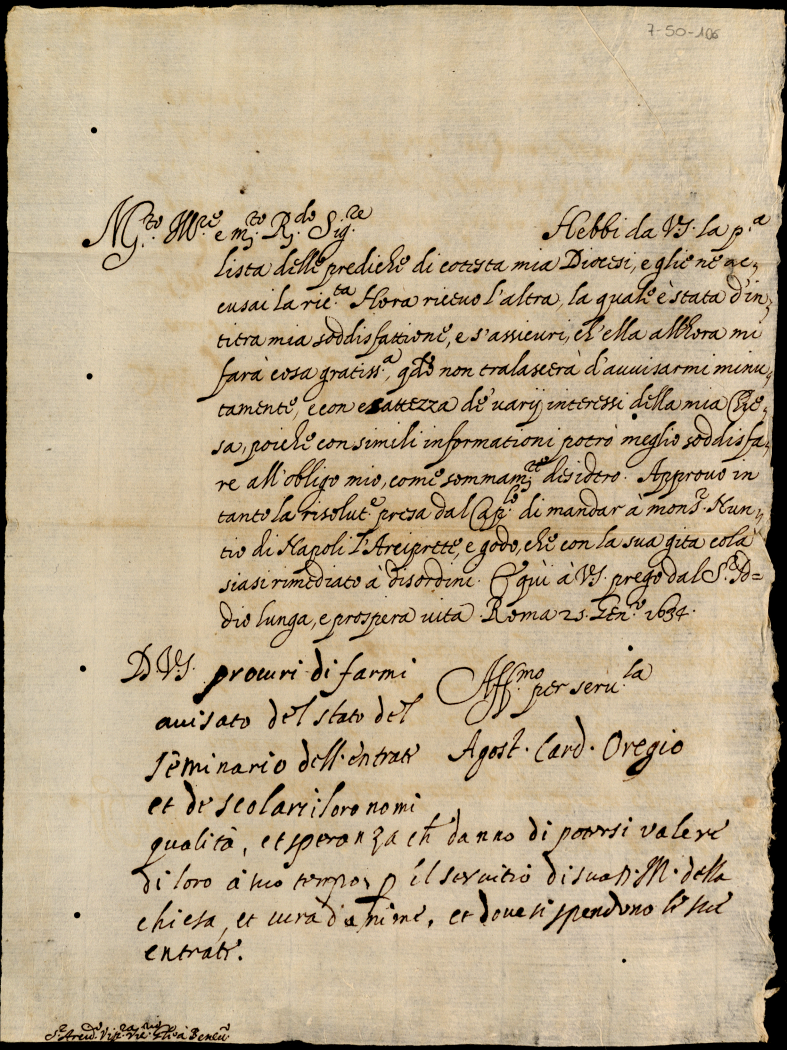 7-50-106
M.to Ill.re e m.to R.do Sig.re Hebbi da VS. la p.a
lista delle prediche di cotesta mia Diocesi, e gliene ac-
cusai la ric.ta Hora ricevo l'altra, la quale è stata d'in-
tiera mia soddisfattione, e s'assicuri, ch'ella all'hora mi
farà cosa gratiss.a, q.do non tralascerà d'avvisarmi minu-
tamente, e con esattezza de' varij interessi della mia Chie-
sa, poiche con simili informationi potrò meglio soddisfa-
re all'obligo mio, come sommam.te desidero. Approvo in
tanto la risolut.e presa dal Cap.lo di mandar à mons.r Nun-
tio di Napoli l'Arciprete, e godo, che con la sua gita colà
siasi rimediato à disordini. E qui à VS. prego dal S.r Id-
dio lunga, e prospera vita. Roma 21. Gen.o 1634.
D VS. procuri di farmi
avisato del stato del
seminario dell'entrate
et de scolari i loro nomi
qualità, et speranza ch danno di potersi valere
di loro à suo tempo, p il servitio di sua D. M. della
chiesa, et cura d'anime, et dove si spendono le sue
entrate.
Aff.mo per seru.la
Agost. Card. Oregio